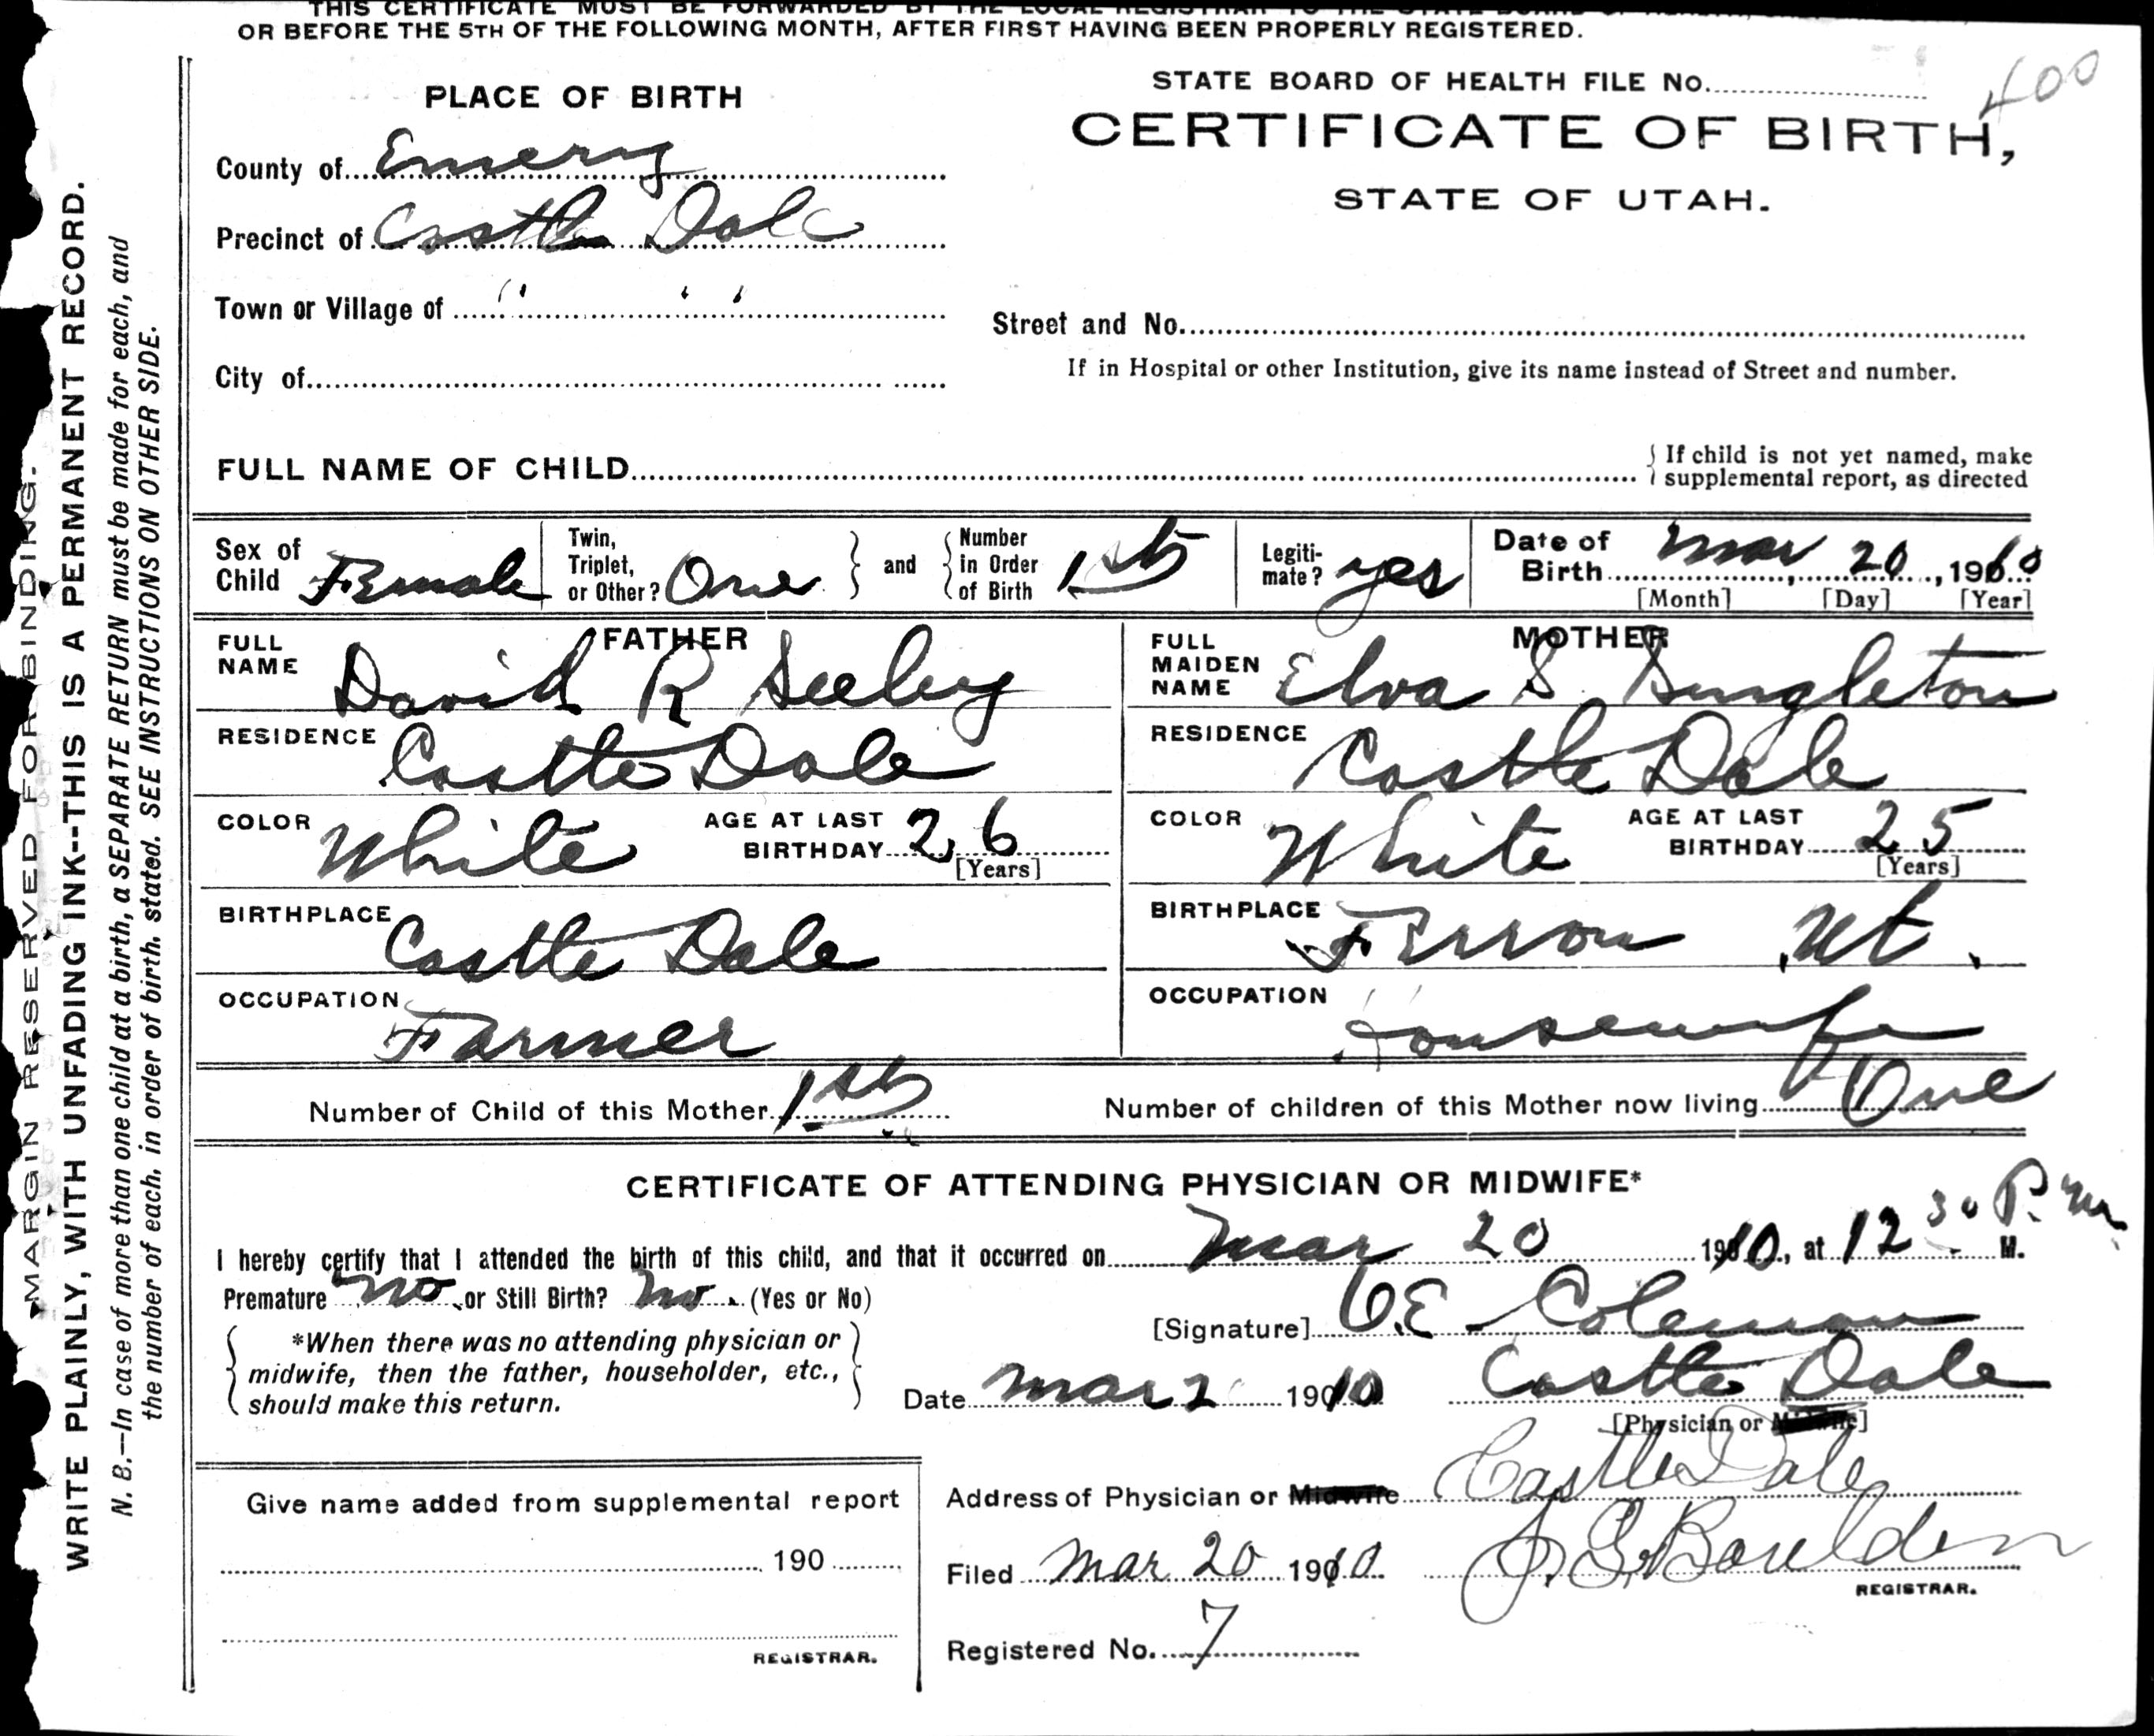 THIS CERTIFICATE MUST BE FORWARDED BY THE LOCAL REGISTRAR TO THE STATE BOARD OF HEALTH,
OR BEFORE THE 5TH OF THE FOLLOWING MONTH, AFTER FIRST HAVING BEEN PROPERLY REGISTERED.
MARGIN RESERVED FOR BINDING.
WRITE PLAINLY, WITH UNFADING INK--THIS IS A PERMANENT RECORD.
N. B.—In case of more than one child at a birth, a SEPARATE RETURN must be made for each, and
the number of each, in order of birth, stated. SEE INSTRUCTIONS ON OTHER SIDE.
STATE BOARD OF HEALTH FILE No. 400
CERTIFICATE OF BIRTH,
STATE OF UTAH.
PLACE OF BIRTH
County of Emery
Precinct of Castle Dale
Town or Village of " " "
City of
Street and No.
If in Hospital or other Institution, give its name instead of Street and number.
FULL NAME OF CHILD
If child is not yet named, make
supplemental report, as directed
Sex of Child Female
Twin, Triplet, or Other? One and Number in Order of Birth 1st
Legiti-mate? yes
Date of Birth Mar 20, 1910
[Month] [Day] [Year]
FATHER
FULL NAME David R Seeley
RESIDENCE Castle Dale
COLOR White AGE AT LAST BIRTHDAY 26
[Years]
BIRTHPLACE Castle Dale
OCCUPATION Farmer
MOTHER
FULL MAIDEN NAME Elva S. Singleton
RESIDENCE Castle Dale
COLOR White AGE AT LAST BIRTHDAY 25
[Years]
BIRTHPLACE Ferron Ut.
OCCUPATION Housewife
Number of Child of this Mother 1st Number of children of this Mother now living One
CERTIFICATE OF ATTENDING PHYSICIAN OR MIDWIFE*
I hereby certify that I attended the birth of this child, and that it occurred on Mar 20 1910, at 12 30 P. m M.
Premature no or Still Birth? no. (Yes or No)
*When there was no attending physician or
midwife, then the father, householder, etc.,
should make this return.
[Signature] E Coleman
Date Mar 2 1910 Castle Dale
[Physician or Midwife]
Address of Physician or Midwife Castle Dale
Filed Mar 20 1910. J. G. Boulden
REGISTRAR.
Registered No. 7
Give name added from supplemental report
190
REGISTRAR.